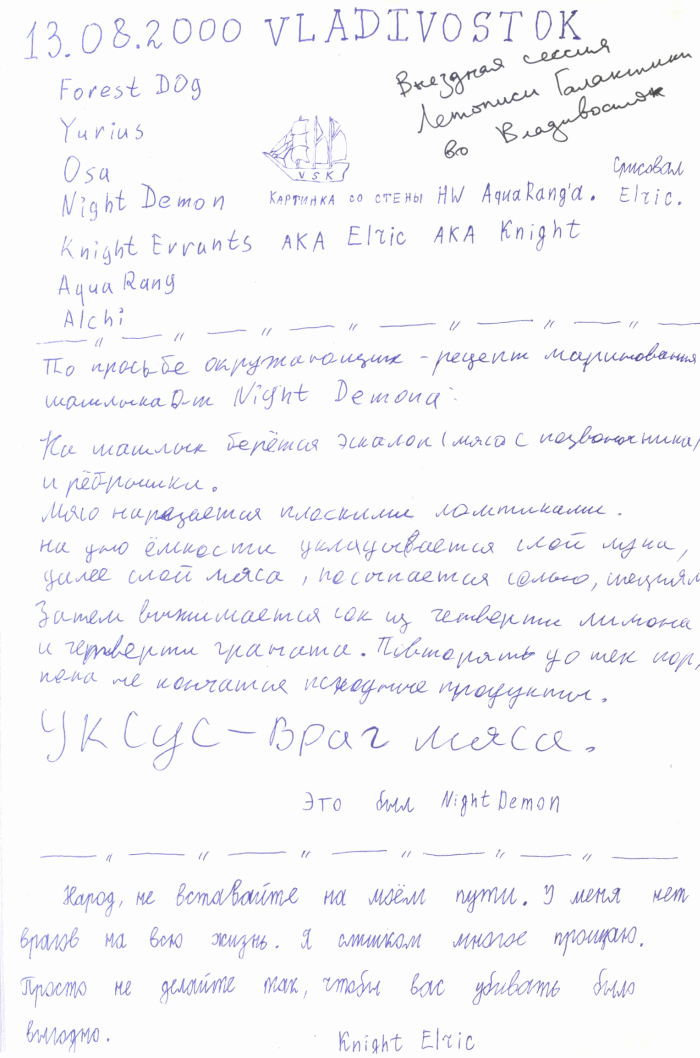 13.08.2000 VLADIVOSTOK
Выездная сессия
Летописи Галактики
во Владивостоке
Forest DOg
Yurius
Osa
Night Demon
VSK
Картинка со стены HW AquaRang'а. Срисовал Elric.
Knight Errants AKA Elric AKA Knight
Aqua Rang
Alchi
По просьбе окружающих - рецепт маринования
шашлыка От Night Demona:
На шашлык берётся эскалоп (мясо с позвоночника)
и рёбрышки.
Мясо нарезается плоскими ломтиками.
На дно ёмкости укладывается слой лука,
далее слой мяса, посыпается солью, специям
Затем выжимается сок из четверти лимона
и четверти граната. Повторять до тех пор,
пока не кончатся исходные продукты.
Уксус - враг мяса.
Это был Night Demon
Народ, не вставайте на моём пути. У меня нет
врагов на всю жизнь. Я слишком многое прощаю.
Просто не делайте так, чтобы вас убивать было
выгодно.
Knight Elric